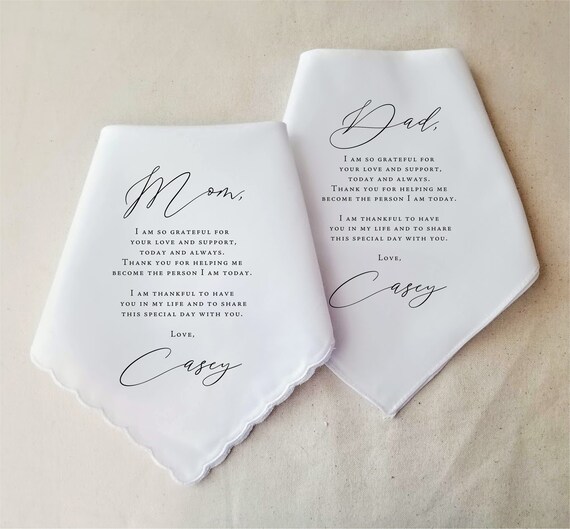 Mom,
I am so grateful for
your love and support,
today and always.
Thank you for helping me
become the person I am today.
I am thankful to have
you in my life and to share
this special day with you.
Love,
Casey
Dad,
I am so grateful for
your love and support,
today and always.
Thank you for helping me
become the person I am today.
I am thankful to have
you in my life and to share
this special day with you.
Love,
Casey